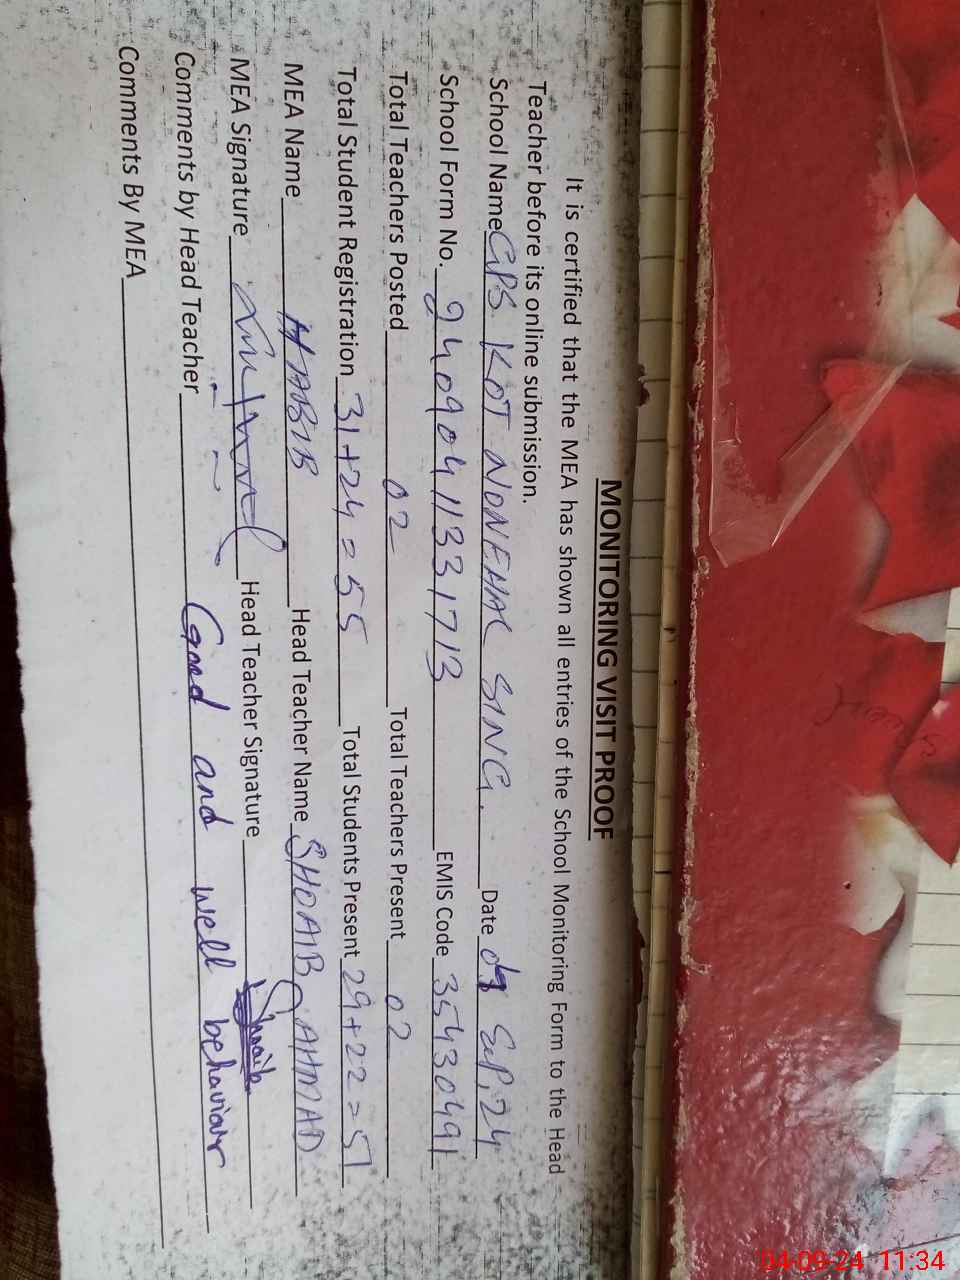 MONITORING VISIT PROOF
It is certified that the MEA has shown all entries of the School Monitoring Form to the Head
Teacher before its online submission.
School Name GPS KOT NONEHAL SING. Date 04 SEP, 24
School Form No. 240904113331713 EMIS Code 35430491
Total Teachers Posted 02 Total Teachers Present 02
Total Student Registration 31+24=55 Total Students Present 29+22=51
MEA Name HABIB Head Teacher Name SHOAIB AHMAD
MEA Signature Head Teacher Signature Shoaib
Comments by Head Teacher Good and well behaviour
Comments By MEA
04-09-24 11:34